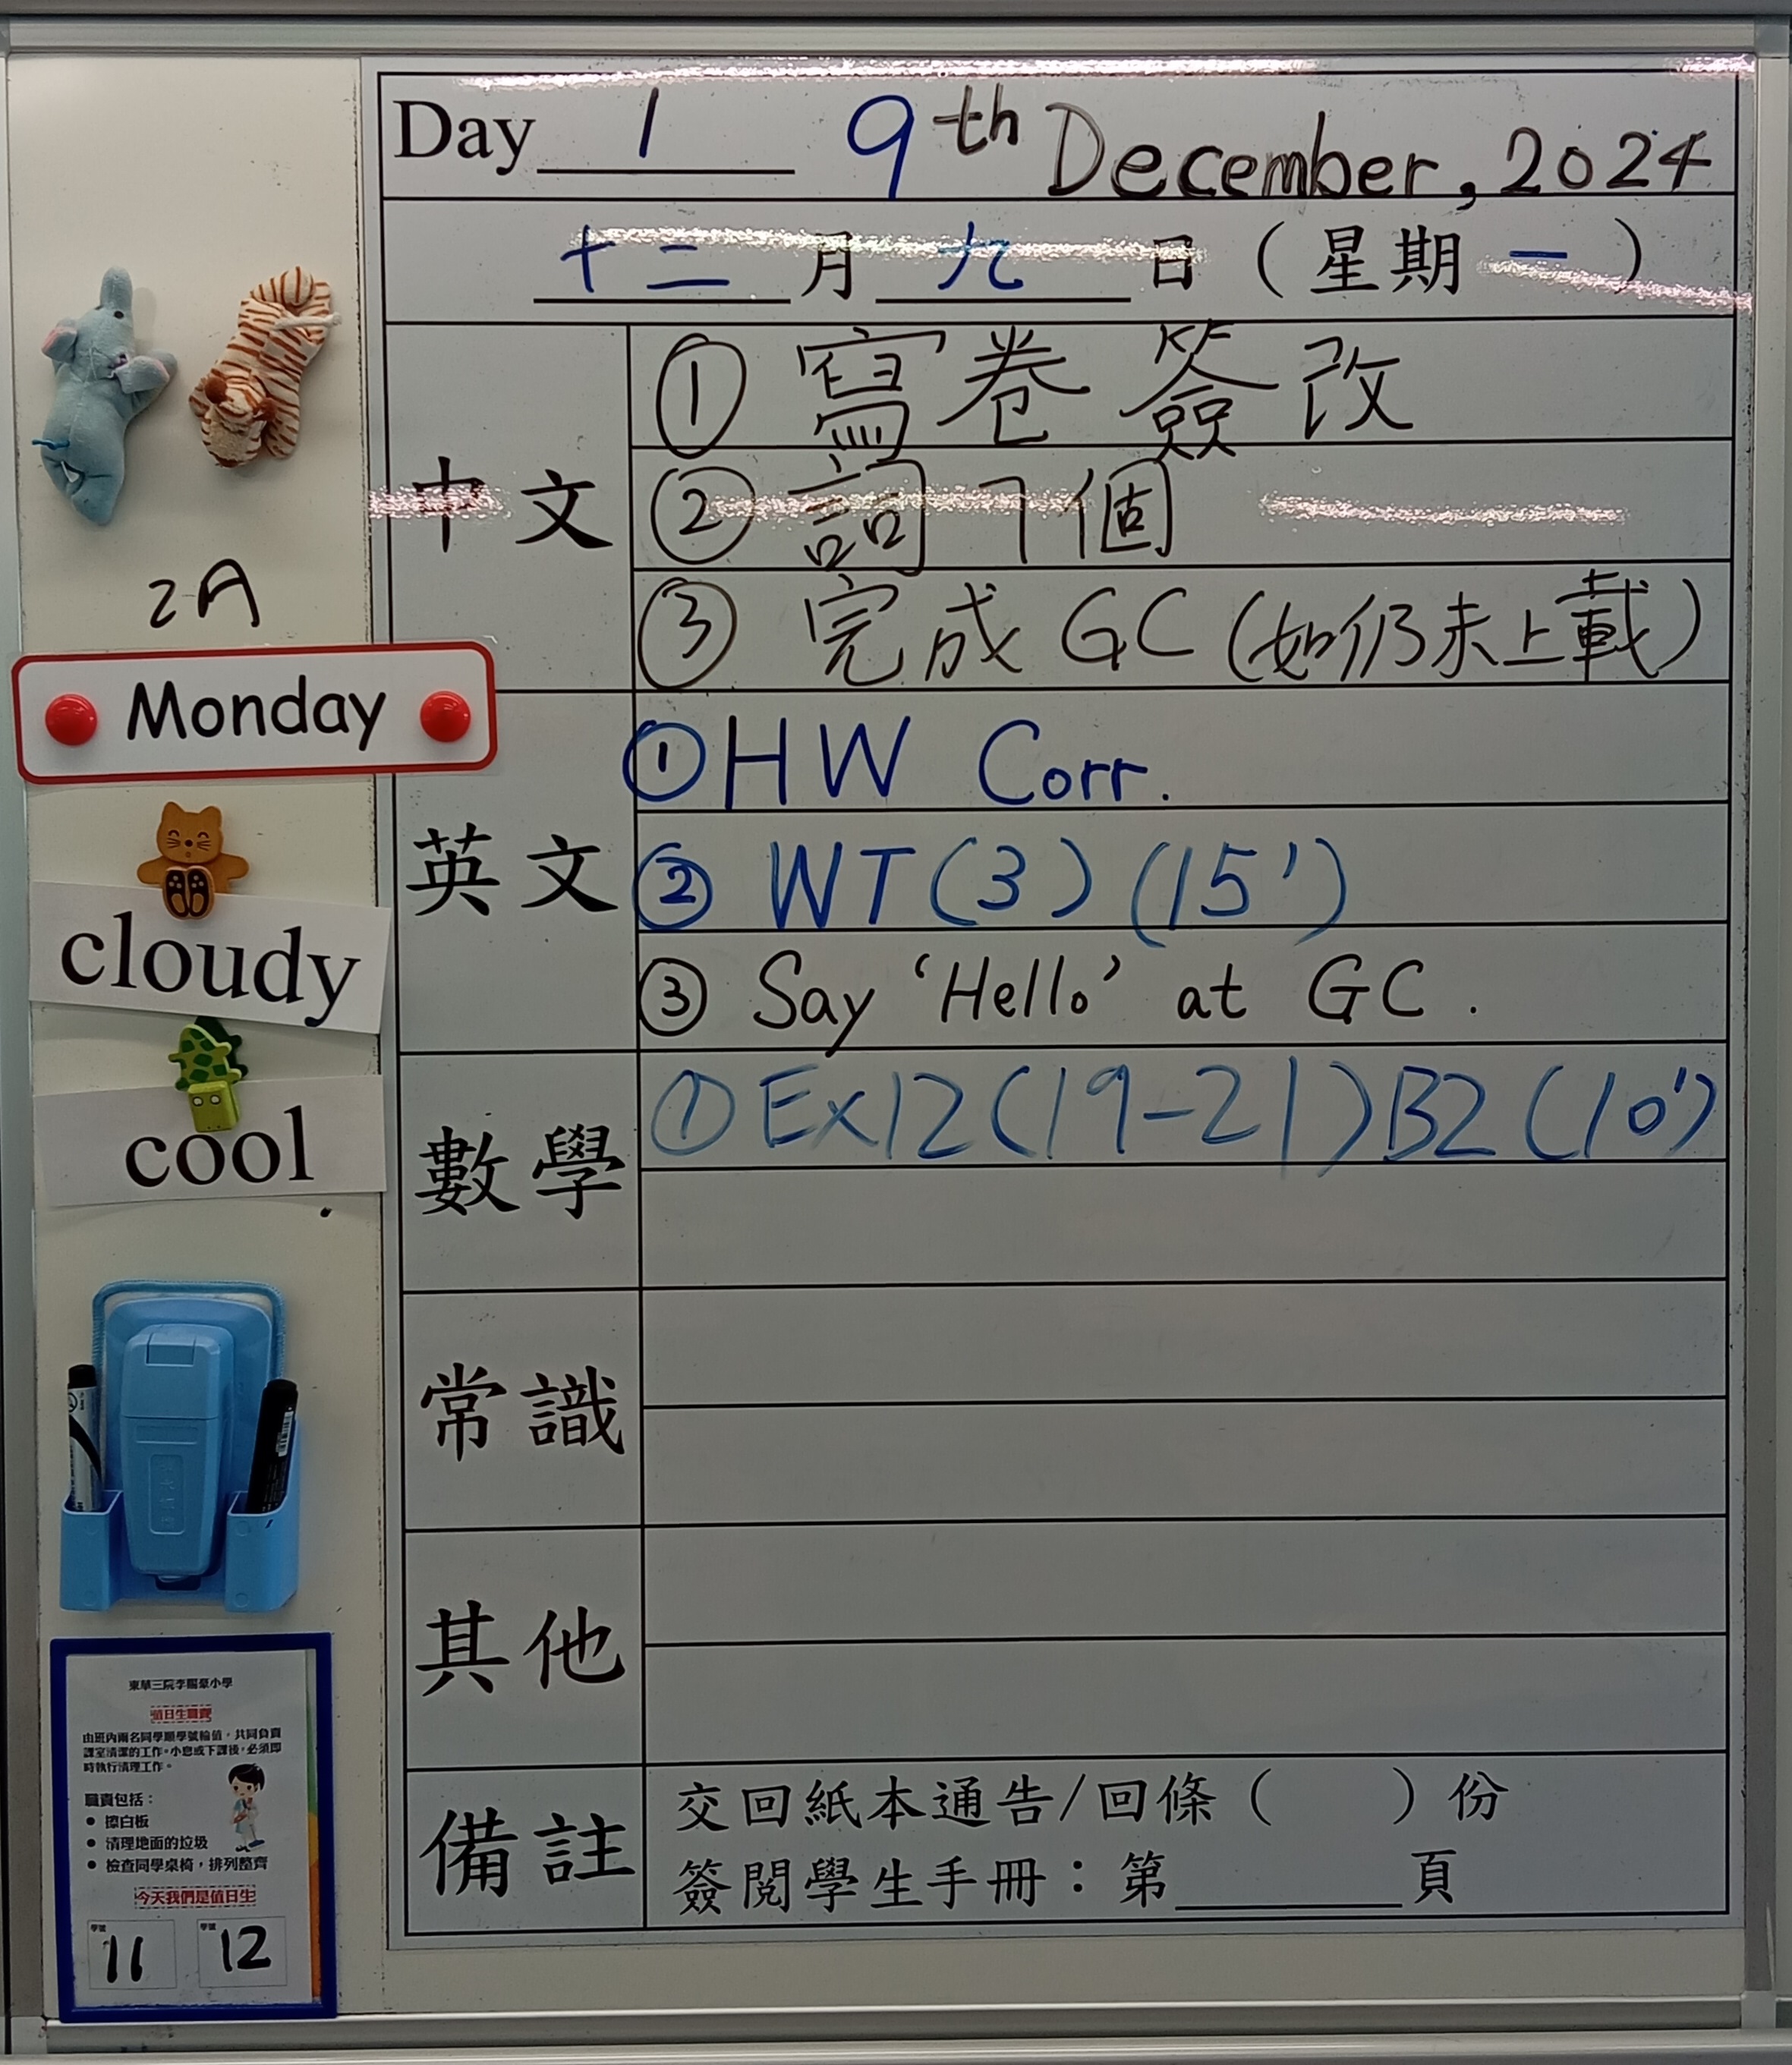 Day 1 9th December, 2024
十二月九日（星期一）
中文
① 寫卷簽改
② 詞7個
③ 完成GC(如仍未上載)
2A
Monday
英文
① HW Corr.
② WT(3) (15')
③ Say 'Hello' at GC.
cloudy
cool
數學
① Ex12(19-21)B2(10')
常識
其他
備註
交回紙本通告/回條（ ）份
簽閱學生手冊：第______頁
東華三院李賜豪小學
值日生職責
由班內兩名同學順學號輪值，共同負責
課室清潔的工作。小息或下課後，必須即
時執行清理工作。
職責包括：
● 擦白板
● 清理地面的垃圾
● 檢查同學桌椅，排列整齊
今天我們是值日生
學號 11 學號 12